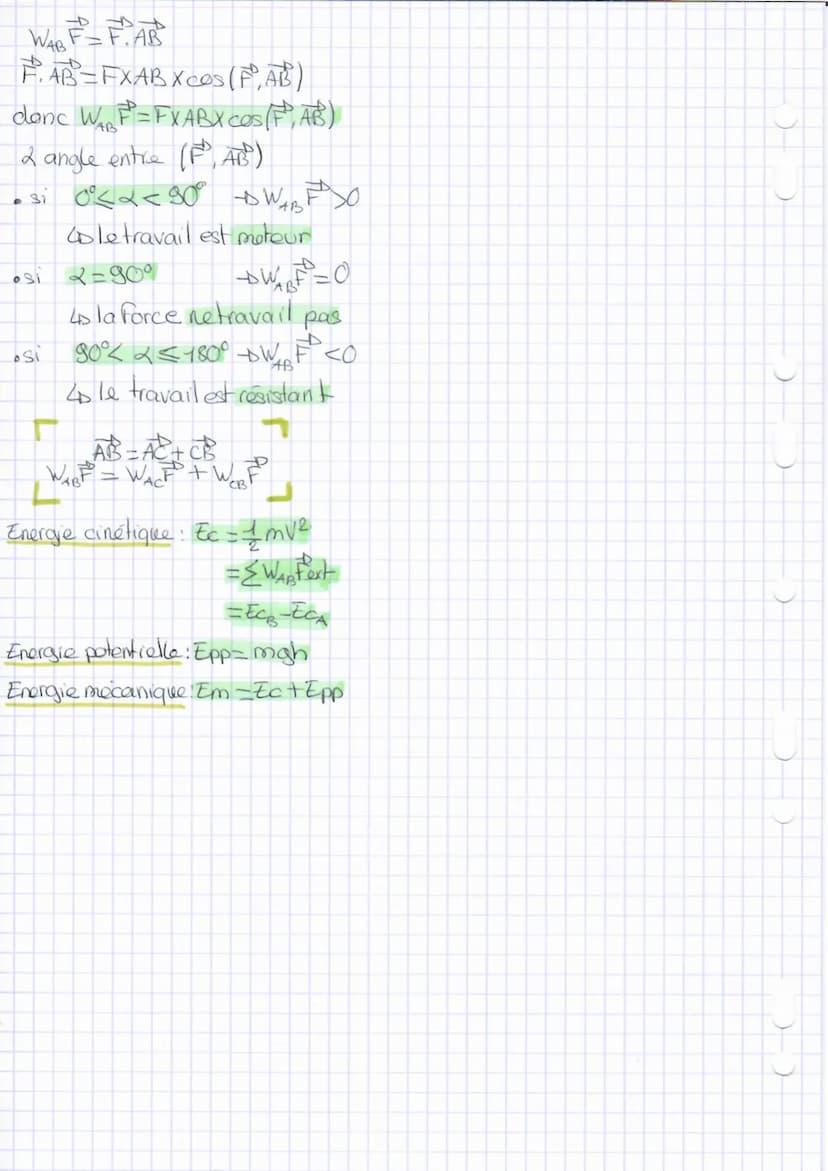 W_AB F⃗ = F⃗ . AB⃗
F⃗ . AB⃗ = F X AB X cos (F⃗, AB⃗)
donc W_AB F⃗ = F X AB X cos (F⃗, AB⃗)
α angle entre (F⃗, AB⃗)
• si 0° ≤ α < 90° → W_AB F⃗ > 0
↳ le travail est moteur
• si α = 90° → W_AB F⃗ = 0
↳ la force ne travail pas
• si 90° < α ≤ 180° → W_AB F⃗ < 0
↳ le travail est résistant
AB⃗ = AC⃗ + CB⃗
W_AB F⃗ = W_AC F⃗ + W_CB F⃗
Energie cinétique : Ec = 1/2 mV²
= Σ W_AB F⃗ext
= Ec_B - Ec_A
Energie potentielle : Epp = mgh
Energie mécanique : Em = Ec + Epp